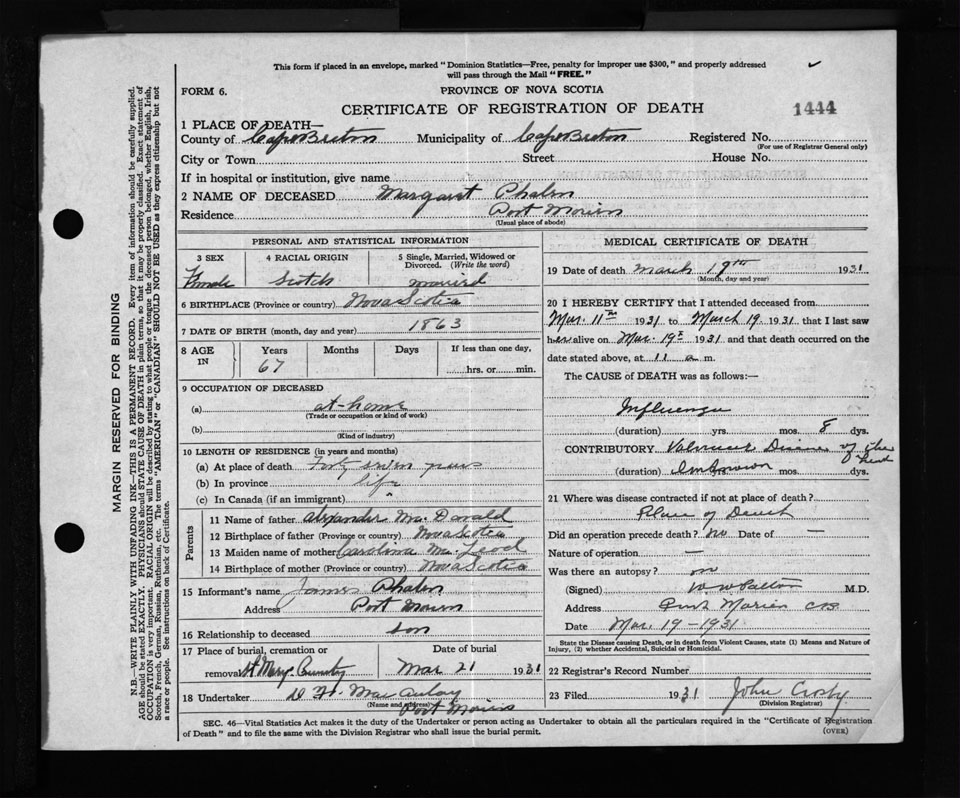 This form if placed in an envelope, marked "Dominion Statistics—Free, penalty for improper use $300," and properly addressed
will pass through the Mail "FREE."
FORM 6.
PROVINCE OF NOVA SCOTIA
CERTIFICATE OF REGISTRATION OF DEATH
1444
1 PLACE OF DEATH—
County of Cape Breton Municipality of Cape Breton Registered No.
(For use of Registrar General only)
City or Town Street House No.
If in hospital or institution, give name
2 NAME OF DECEASED Margaret Phalen
Residence Port Morien
(Usual place of abode)
PERSONAL AND STATISTICAL INFORMATION
3 SEX 4 RACIAL ORIGIN 5 Single, Married, Widowed or
Divorced. (Write the word)
Female Scotch married
6 BIRTHPLACE (Province or country) Nova Scotia
7 DATE OF BIRTH (month, day and year) 1863
8 AGE IN Years Months Days If less than one day,
67 hrs. or min.
9 OCCUPATION OF DECEASED
(a) at-home
(Trade or occupation or kind of work)
(b)
(Kind of industry)
10 LENGTH OF RESIDENCE (in years and months)
(a) At place of death Forty seven years
(b) In province life
(c) In Canada (if an immigrant)
Parents
11 Name of father Alexander McDonald
12 Birthplace of father (Province or country) Nova Scotia
13 Maiden name of mother Carolina McLeod
14 Birthplace of mother (Province or country) Nova Scotia
15 Informant's name James Phalen
Address Port Morien
16 Relationship to deceased son
17 Place of burial, cremation or Date of burial
removal St Marys Cemetery Mar 21 1931
18 Undertaker D. H. MacAulay
(Name and address)
Port Morien
MEDICAL CERTIFICATE OF DEATH
19 Date of death March 19th 1931
(Month, day and year)
20 I HEREBY CERTIFY that I attended deceased from
Mar. 11th 1931 to March 19 1931 that I last saw
her alive on Mar. 19th 1931 and that death occurred on the
date stated above, at 11 a m.
The CAUSE of DEATH was as follows:—
Influenza
(duration) yrs. mos. 8 dys.
CONTRIBUTORY Valvular Disease of the Heart
(duration) Unknown mos. dys.
21 Where was disease contracted if not at place of death?
Place of Death
Did an operation precede death? no Date of —
Nature of operation —
Was there an autopsy? no
(Signed) W. W. Patton M.D.
Address Port Morien C.B.
Date Mar. 19 - 1931
State the Disease causing Death, or in death from Violent Causes, state (1) Means and Nature of
Injury, (2) whether Accidental, Suicidal or Homicidal.
22 Registrar's Record Number
23 Filed 1931 John Crosby
(Division Registrar)
SEC. 46—Vital Statistics Act makes it the duty of the Undertaker or person acting as Undertaker to obtain all the particulars required in the "Certificate of Registration
of Death" and to file the same with the Division Registrar who shall issue the burial permit.
(OVER)
MARGIN RESERVED FOR BINDING
N.B.—WRITE PLAINLY WITH UNFADING INK—THIS IS A PERMANENT RECORD. Every item of information should be carefully supplied.
AGE should be stated EXACTLY. PHYSICIANS should STATE CAUSE OF DEATH in plain terms, so that it may be properly classified. Exact statement of
OCCUPATION is very important. RACIAL ORIGIN will be described by stating to what people or tongue the deceased person belonged, whether English, Irish,
Scotch, French, German, Russian, Ruthenian, etc. The terms "AMERICAN" or "CANADIAN" SHOULD NOT BE USED as they express citizenship but not
a race or people. See instructions on back of Certificate.